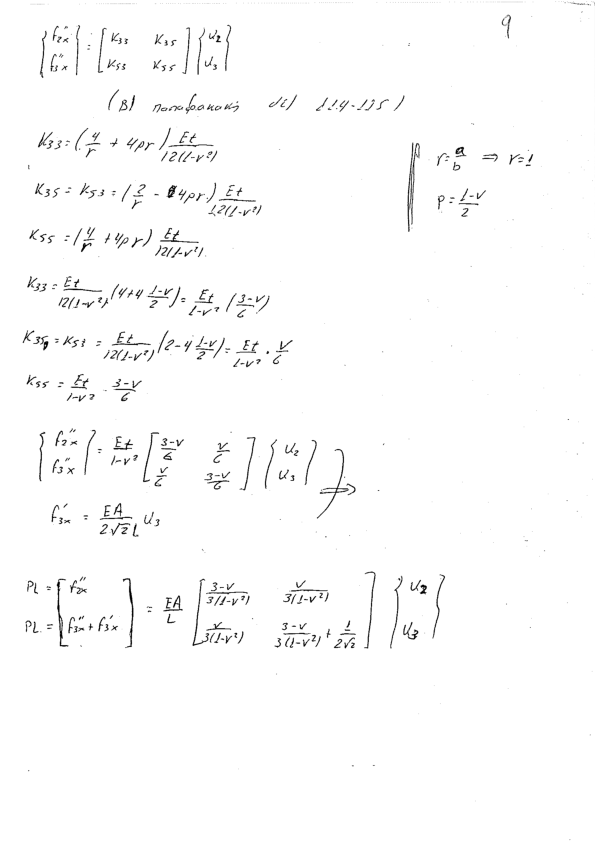 9
{f''2x f''3x} = [K33 K35 K53 K55] {u2 u3}
(B)
K33 = (4/r + 4pr) Et/12(1-v²)
r = a/b ⇒ r=1
K35 = K53 = (2/r - 4pr) Et/12(1-v²)
p = 1-v/2
K55 = (4/r + 4pr) Et/12(1-v²)
K33 = Et/12(1-v²) (4+4 1-v/2) = Et/1-v² (3-v/6)
K35 = K53 = Et/12(1-v²) (2-4 1-v/2) = Et/1-v² · v/6
K55 = Et/1-v² · 3-v/6
{f''2x f''3x} = Et/1-v² [3-v/6 v/6 v/6 3-v/6] {u2 u3} ⇒
f'3x = EA/2√2 L u3
PL = [f''2x
PL = f''3x + f'3x] = EA/L [3-v/3(1-v²) v/3(1-v²) v/3(1-v²) 3-v/3(1-v²) + 1/2√2] {u2 u3}